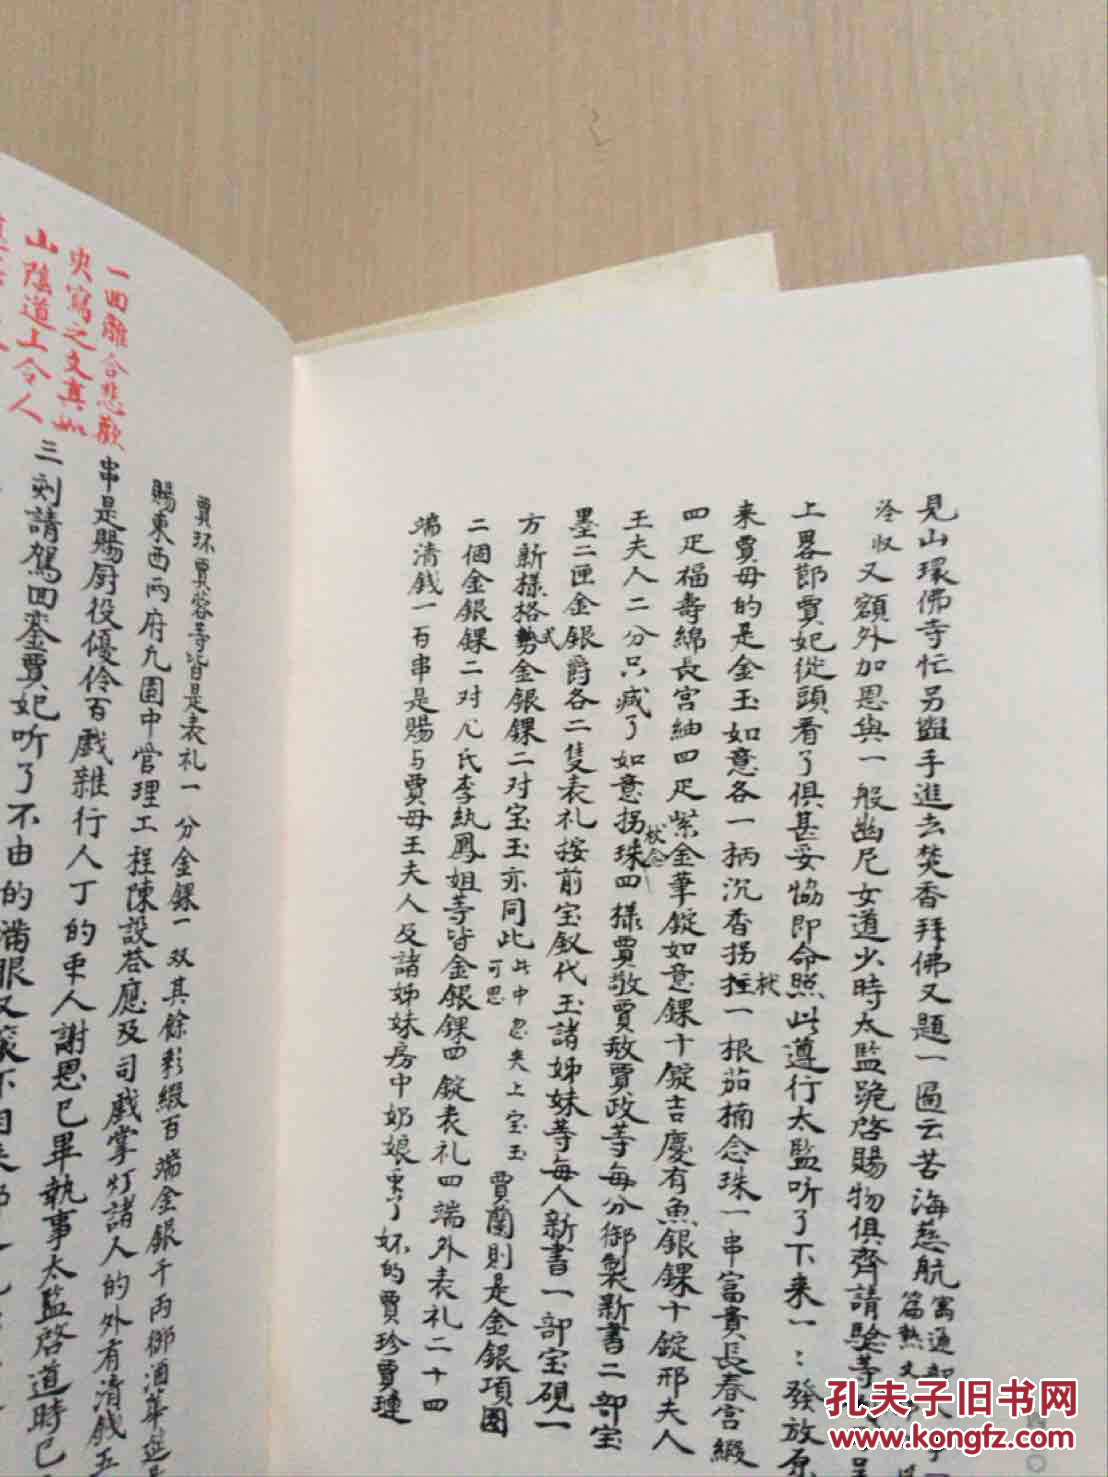 見山環佛寺忙另盥手進去焚香拜佛又題一匾云苦海慈航
寓通部人事一
篇熱文
冷收
又額外加恩與一般幽尼女道少時太監跪啓賜物俱齊請驗等
上畧節賈妃從頭看了俱甚妥協即命照此遵行太監听了下来一:發放原
来賈母的是金玉如意各一柄沉香拐拄一根茄楠念珠一串富貴長春宮緞
杖
四疋福壽綿長宮紬四疋紫金華錠如意錁十錠吉慶有魚銀錁十錠邢夫人
王夫人二分只减了如意拐珠四樣賈敬賈赦賈政等每分御製新書二部宝
杖念
墨二匣金銀爵各二隻表礼按前宝釵代玉諸姊妹等每人新書一部宝硯一
方新樣格勢金銀錁二对宝玉亦同此
式
此中忽夹上宝玉
可思
賈蘭則是金銀項圈
二個金銀錁二对尤氏李紈鳳姐等皆金銀錁四錠表礼四端外表礼二十四
端清钱一百串是賜与賈母王夫人及諸姊妹房中奶娘衆了妖的賈珍賈璉
賈环賈蓉等皆是表礼一分金錁一双其餘彩緞百端金銀千两御酒華筵是
賜東西两府九園中管理工程陳設荅應及司戲掌灯諸人的外有清钱五
串是賜厨役優伶百戲雜行人丁的衆人謝恩已畢執事太監啓道時已
三刻請駕囬銮賈妃听了不由的满眼又滚下泪来
一囬離合悲歡
夹寫之文真如
山陰道上令人
孔夫子旧书网
www.kongfz.com